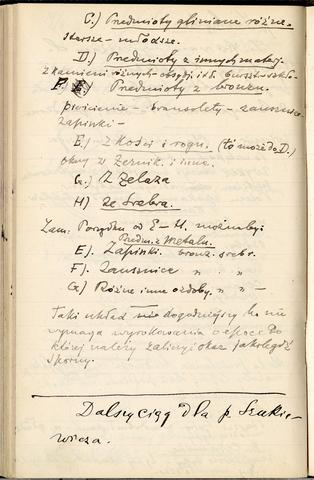 C.) Przedmioty gliniane różne.
starsze – młodsze.
D.) Przedmioty z innych materj.
z kamieni różnych – obsydj. itd. burszt. – szkło –
F. Przedmioty z bronzu.
pierścienie – bransolety – zausznice
zapinki –
E.) Z Kości i rogu. (to może do D.)
okuy w Żernik. i inne.
G.) Z żelaza
H) ze Srebra.
Zam. Porządku od E – H. możnaby:
Przedm. z Metalu.
E). Zapinki. bronz. srebr.
F). Zausznice " . "
G) Różne inne ozdoby. " " –
Taki układ nie dogodniejszy bo nie
wymaga wyrokowania o epoce do
której należy zaliczyć okaz jakolegdź
sporny.
Dalszy ciąg dla p. Szukie-
wicza.